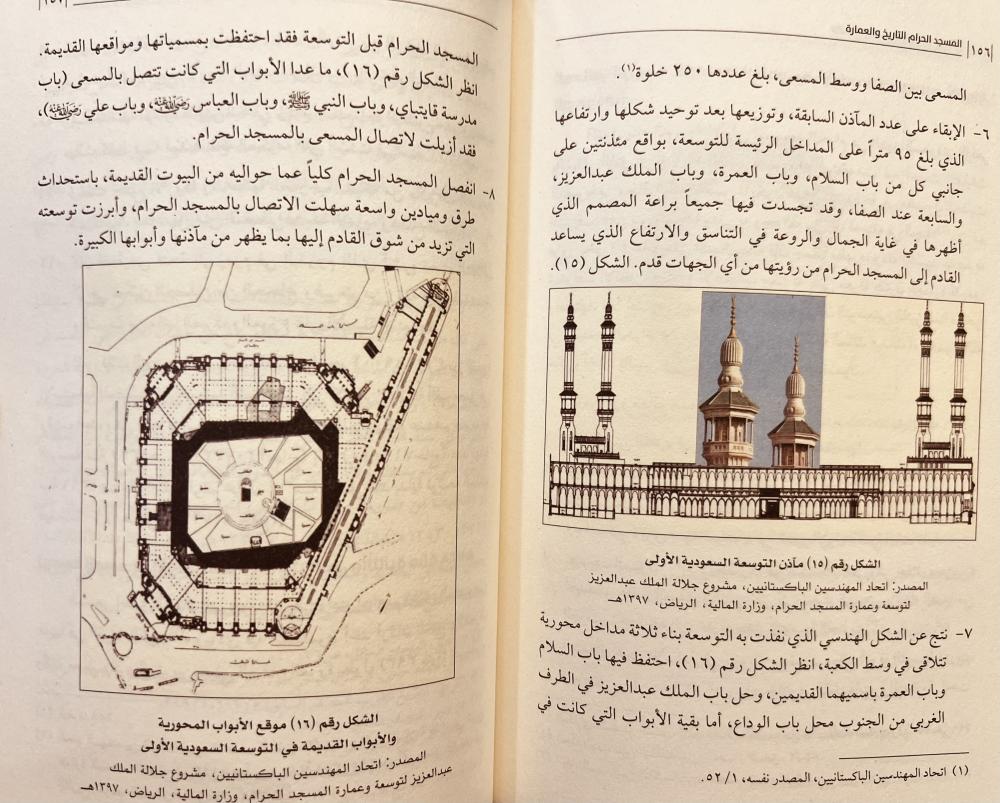 المسجد الحرام التاريخ والعمارة
١٥٦
المسعى بين الصفا ووسط المسعى، بلغ عددها ٢٥٠ خلوة(١).
٦- الإبقاء على عدد المآذن السابقة، وتوزيعها بعد توحيد شكلها وارتفاعها
الذي بلغ ٩٥ متراً على المداخل الرئيسة للتوسعة، بواقع مئذنتين على
جانبي كل من باب السلام، وباب العمرة، وباب الملك عبدالعزيز،
والسابعة عند الصفا، وقد تجسدت فيها جميعاً براعة المصمم الذي
أظهرها في غاية الجمال والروعة في التناسق والارتفاع الذي يساعد
القادم إلى المسجد الحرام من رؤيتها من أي الجهات قدم. الشكل (١٥).
الشكل رقم (١٥) مآذن التوسعة السعودية الأولى
المصدر: اتحاد المهندسين الباكستانيين، مشروع جلالة الملك عبدالعزيز
لتوسعة وعمارة المسجد الحرام، وزارة المالية، الرياض، ١٣٩٧هـ
٧- نتج عن الشكل الهندسي الذي نفذت به التوسعة بناء ثلاثة مداخل محورية
تتلاقى في وسط الكعبة، انظر الشكل رقم (١٦)، احتفظ فيها باب السلام
وباب العمرة باسميهما القديمين، وحل باب الملك عبدالعزيز في الطرف
الغربي من الجنوب محل باب الوداع، أما بقية الأبواب التي كانت في
(١) اتحاد المهندسين الباكستانيين، المصدر نفسه، ٥٢/١.
١٥٧
المسجد الحرام قبل التوسعة فقد احتفظت بمسمياتها ومواقعها القديمة.
انظر الشكل رقم (١٦)، ما عدا الأبواب التي كانت تتصل بالمسعى (باب
مدرسة قايتباي، وباب النبي ﷺ، وباب العباس رضي الله عنه، وباب علي رضي الله عنه)،
فقد أزيلت لاتصال المسعى بالمسجد الحرام.
٨- انفصل المسجد الحرام كلياً عما حواليه من البيوت القديمة، باستحداث
طرق وميادين واسعة سهلت الاتصال بالمسجد الحرام، وأبرزت توسعته
التي تزيد من شوق القادم إليها بما يظهر من مآذنها وأبوابها الكبيرة.
الشكل رقم (١٦) موقع الأبواب المحورية
والأبواب القديمة في التوسعة السعودية الأولى
المصدر: اتحاد المهندسين الباكستانيين، مشروع جلالة الملك
عبدالعزيز لتوسعة وعمارة المسجد الحرام، وزارة المالية، الرياض، ١٣٩٧هـ